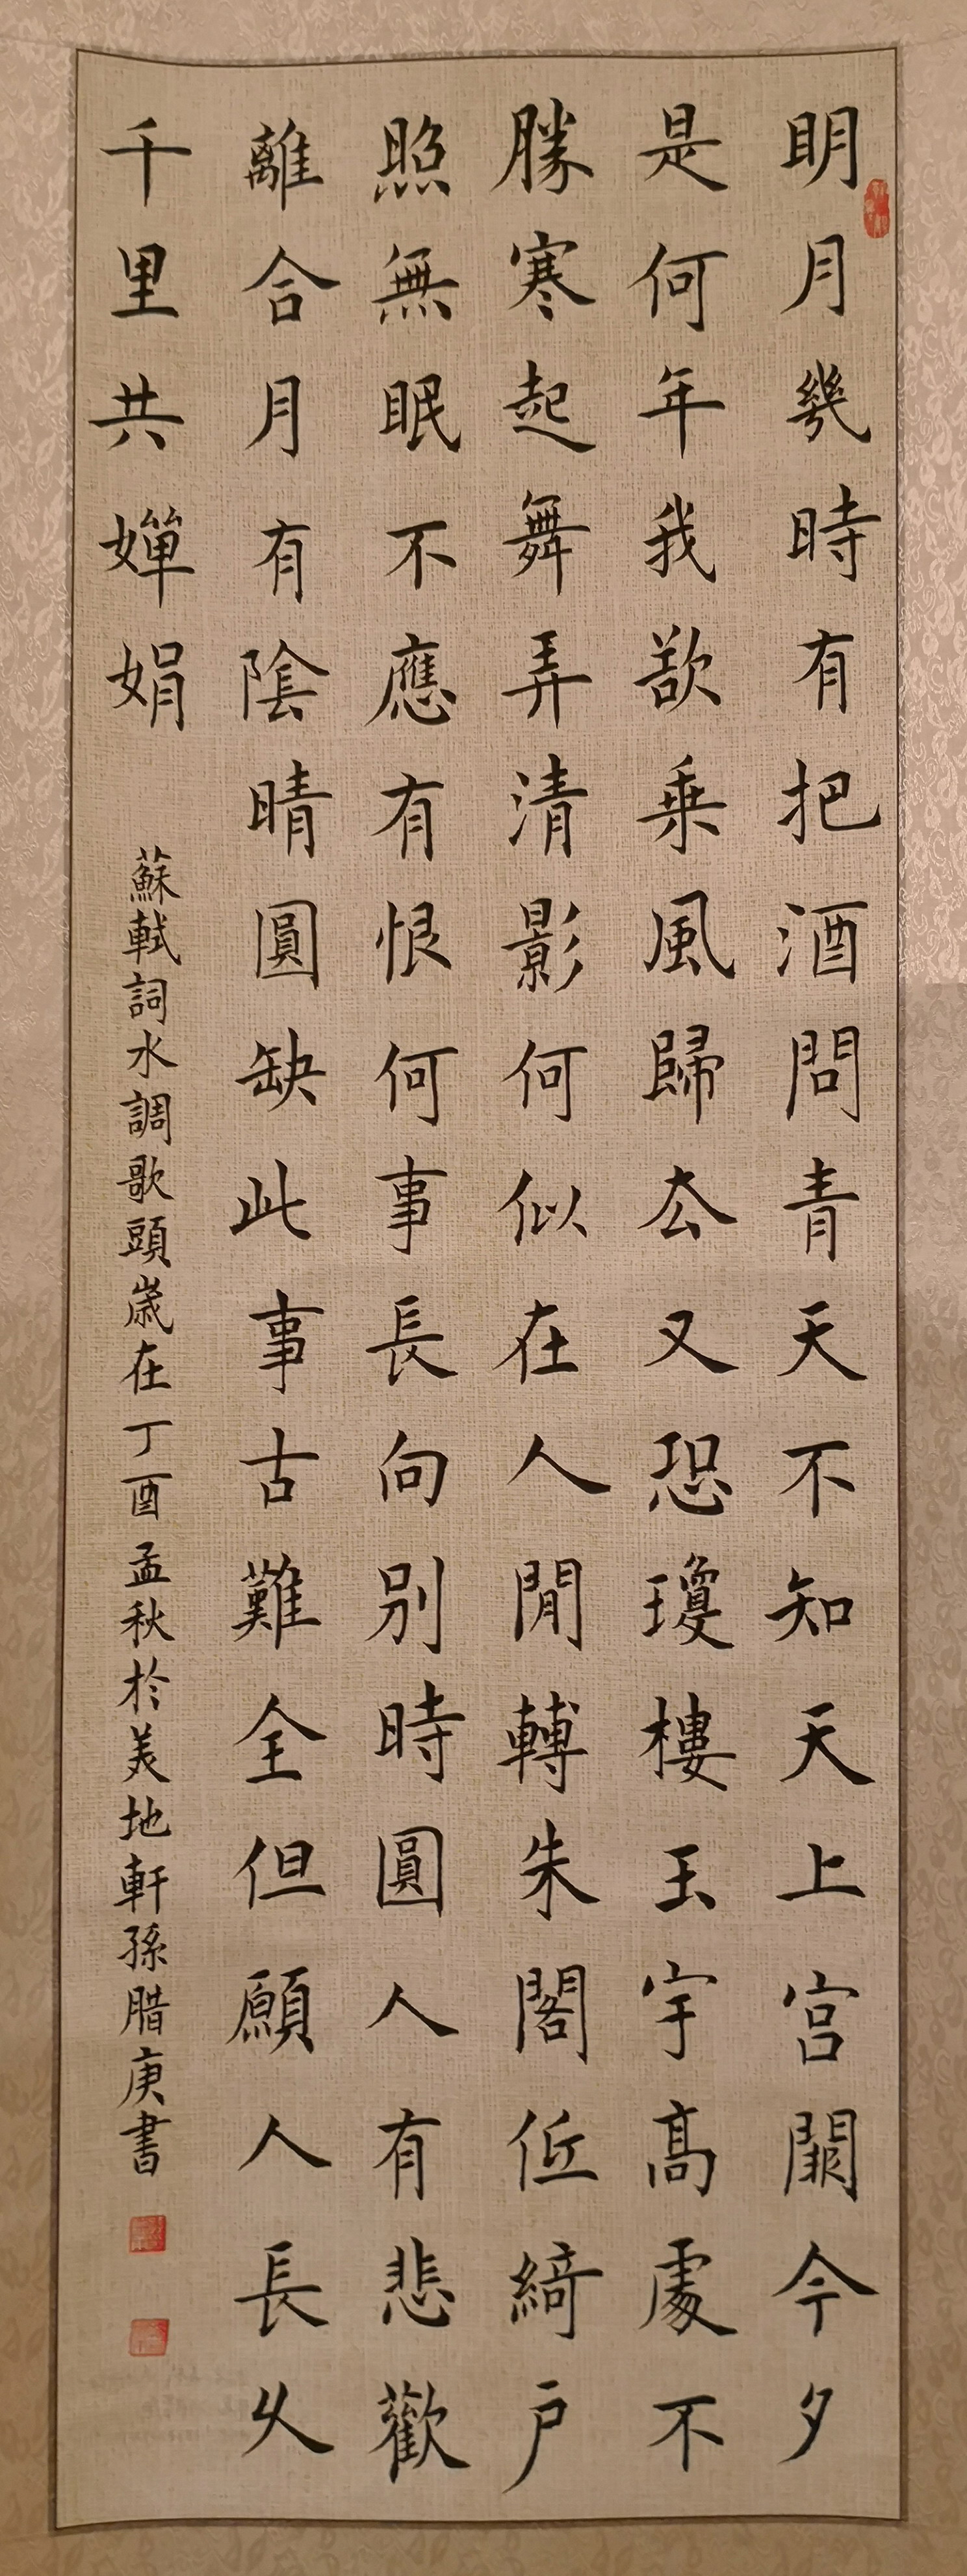 明月幾時有把酒問青天不知天上宮闕今夕
是何年我欲乗風歸去又恐瓊樓玉宇高處不
勝寒起舞弄清影何似在人閒轉朱閣低綺户
照無眠不應有恨何事長向別時圓人有悲歡
離合月有陰晴圓缺此事古難全但願人長久
千里共嬋娟
蘇軾詞水調歌頭歲在丁酉孟秋於美地軒孫腊庚書